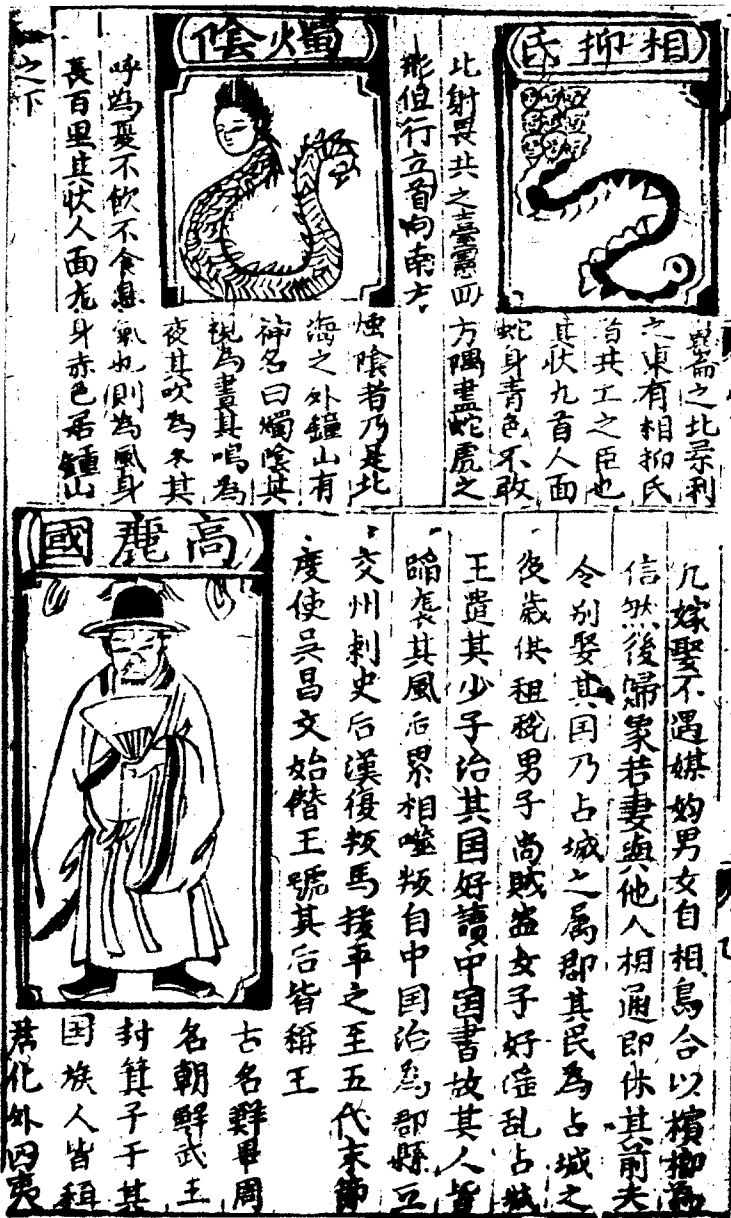 相抑氏
崑崙之北柔利
之東有相抑氏
者共工之臣也
其状九首人面
蛇身青色不敢
北射畏共之臺臺四方隅盡蛇虎之
形但行立首向南方
燭陰
燭陰者乃是北
海之外鐘山有
神名曰燭陰其
視為晝其鳴為
夜其吹為冬其
呼為夏不飲不食息氣也則為風身
長百里其状人面龙身赤色居鐘山
之下
凢嫁娶不遇媒妁男女自相鳥合以檳榔為
信然後歸家若妻與他人相通即休其前夫
令别娶其囯乃占城之属郡其民為占城之
後歲供租稅男子尚賊盗女子好滛乱占城
王遣其少子治其囯好讀中国書故其人皆
蹈袭其風后累相噬叛自中国治為郡縣立
交州刺史后漢復叛馬援平之至五代末節
度使吳昌文始僣王號其后皆稱王
高麗國
古名鮮卑周
名朝鮮武王
封箕子于其
囯族人皆稱
君化外四夷